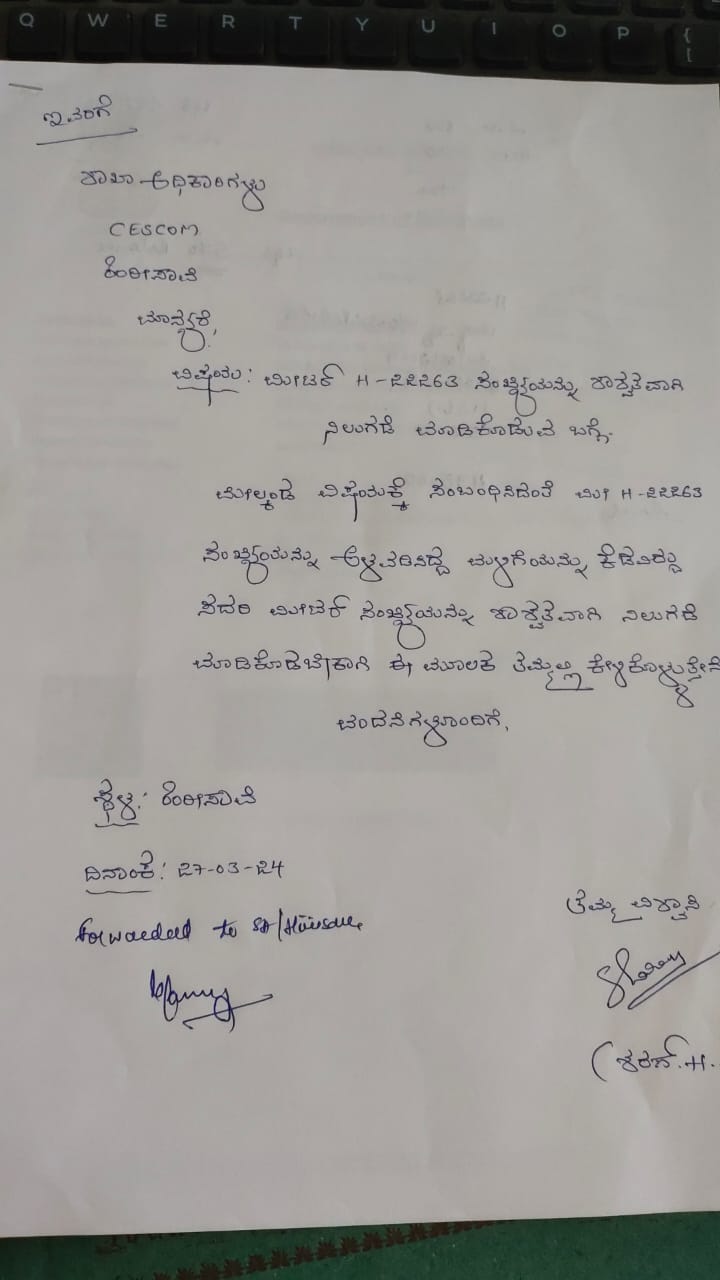 Q W E R T Y U I O P { [
ಇವರಿಗೆ
ಶಾಖಾ ಅಧಿಕಾರಿಗಳು
CESCOM
ಹಿರೀಸಾವೆ
ಮಾನ್ಯರೆ,
ವಿಷಯ: ಮೀಟರ್ H-22263 ಸಂಖ್ಯೆಯನ್ನು ಶಾಶ್ವತವಾಗಿ
ನಿಲುಗಡೆ ಮಾಡಿಕೊಡುವ ಬಗ್ಗೆ.
ಮೇಲ್ಕಂಡ ವಿಷಯಕ್ಕೆ ಸಂಬಂಧಿಸಿದಂತೆ ಮೀ H-22263
ಸಂಖ್ಯೆಯನ್ನು ಅಳವಡಿಸಿದ್ದ ಮಳಿಗೆಯನ್ನು ಕೆಡವಿದ್ದು
ಸದರಿ ಮೀಟರ್ ಸಂಖ್ಯೆಯನ್ನು ಶಾಶ್ವತವಾಗಿ ನಿಲುಗಡೆ
ಮಾಡಿಕೊಡಬೇಕಾಗಿ ಈ ಮೂಲಕ ತಮ್ಮಲ್ಲಿ ಕೇಳಿಕೊಳ್ಳುತ್ತೇನೆ
ವಂದನೆಗಳೊಂದಿಗೆ,
ಸ್ಥಳ: ಹಿರೀಸಾವೆ
ದಿನಾಂಕ: 27-03-24
ತಮ್ಮ ವಿಶ್ವಾಸಿ
Forwarded to
(ಶರತ್.H.